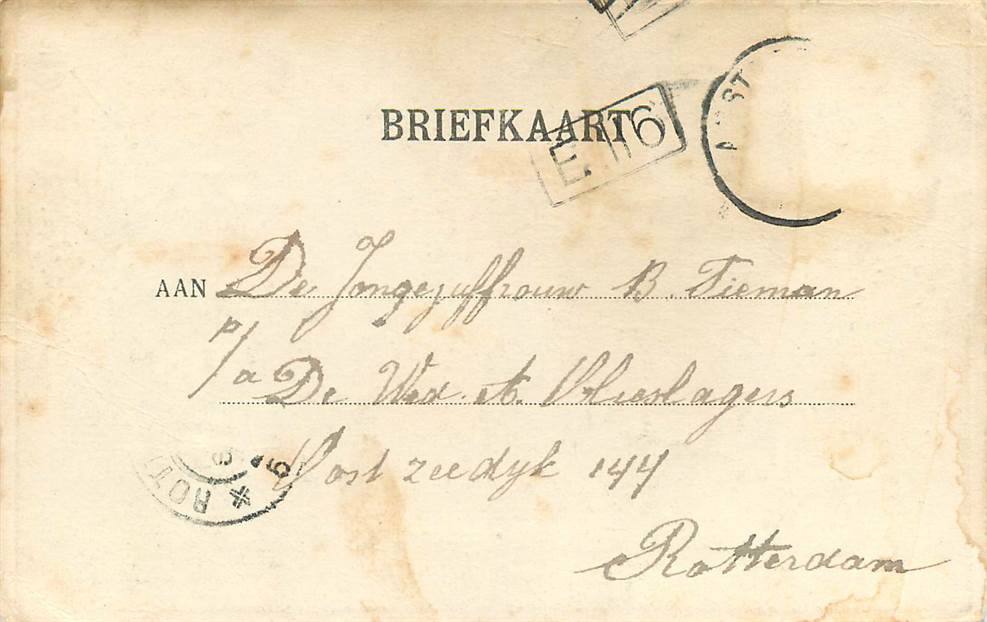 BRIEFKAART
E. 116
AAN De Jongejuffrouw B. Tieman
p/a De Wed. A. Vlieslagers
Oost zeedyk 144
Rotterdam
ROT